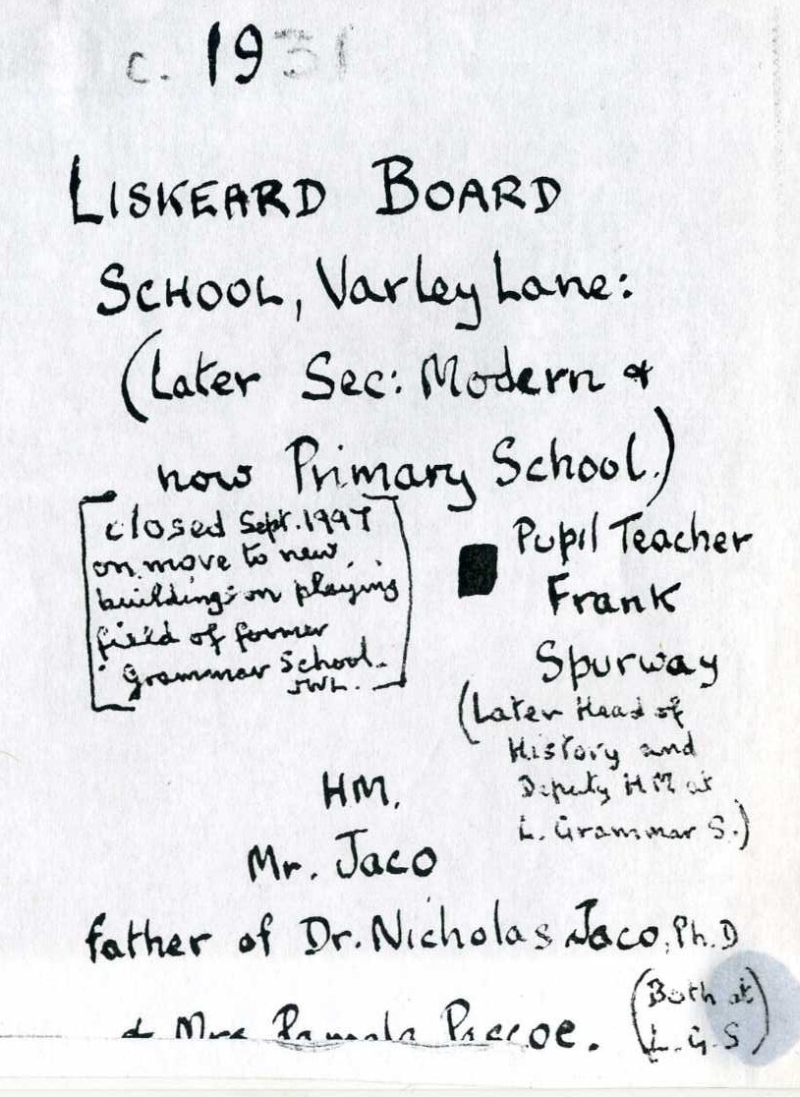 c. 1931
LISKEARD BOARD
SCHOOL, Varley Lane:
(Later Sec: Modern &
now Primary School.)
[closed Sept. 1997
on move to new
buildings on playing
field of former
Grammar School.
JWL.]
Pupil Teacher
Frank
Spurway
(Later Head of
History and
Deputy HM at
L. Grammar S.)
HM.
Mr. Jaco
father of Dr. Nicholas Jaco, Ph.D
& Mrs Pamela Pascoe.
(Both at
L.G.S)